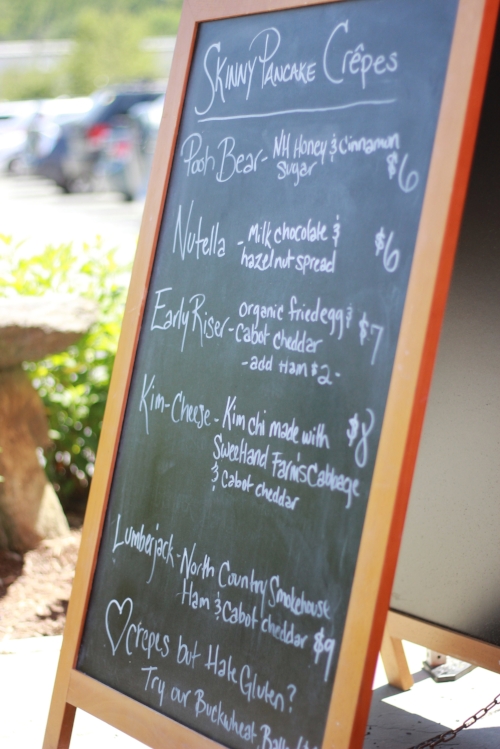 Skinny Pancake Crêpes
Pooh Bear - NH Honey & Cinnamon
Sugar $6
Nutella - Milk chocolate &
hazelnut spread $6
Early Riser - organic fried egg &
cabot cheddar $7
- add Ham $2 -
Kim-Cheese - Kim chi made with $8
Sweetland Farm's Cabbage
& cabot cheddar
Lumberjack - North Country Smokehouse
Ham & Cabot cheddar $9
♡ crepes but Hate Gluten?
Try our Buckwheat